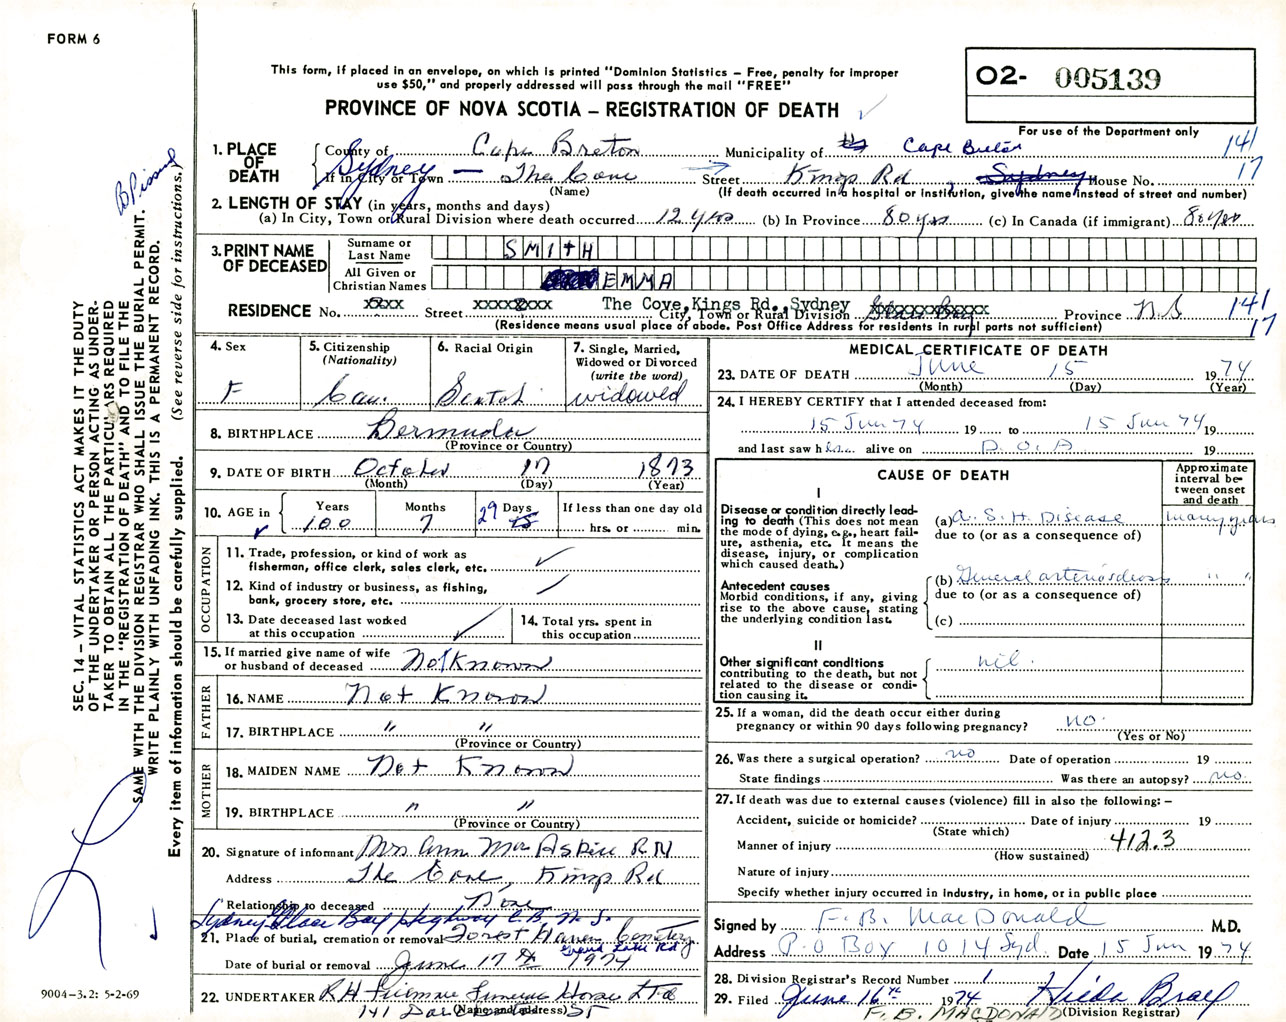 FORM 6
This form, if placed in an envelope, on which is printed "Dominion Statistics – Free, penalty for improper
use $50," and properly addressed will pass through the mail "FREE"
PROVINCE OF NOVA SCOTIA – REGISTRATION OF DEATH
O2- 005139
For use of the Department only
1. PLACE OF DEATH
County of Cape Breton Municipality of Cape Breton 141
Sydney
If in City or Town – The Cove Street Kings Rd, Sydney House No. 17
(Name) (If death occurred in a hospital or institution, give the name instead of street and number)
2. LENGTH OF STAY (in years, months and days)
(a) In City, Town or Rural Division where death occurred 12 yrs (b) In Province 80 yrs (c) In Canada (if immigrant) 80 yrs
3. PRINT NAME OF DECEASED
Surname or Last Name SMITH
All Given or Christian Names EMMA
RESIDENCE No. xxxx Street xxxxxxxx The Cove, Kings Rd., Sydney
City, Town or Rural Division Province N.S 141
(Residence means usual place of abode. Post Office Address for residents in rural parts not sufficient) 17
4. Sex F
5. Citizenship (Nationality) Can.
6. Racial Origin
7. Single, Married, Widowed or Divorced (write the word) widowed
8. BIRTHPLACE Bermuda
(Province or Country)
9. DATE OF BIRTH October 17 1873
(Month) (Day) (Year)
10. AGE in Years 100 Months 7 Days 29 If less than one day old hrs. or min.
OCCUPATION
11. Trade, profession, or kind of work as fisherman, office clerk, sales clerk, etc.
12. Kind of industry or business, as fishing, bank, grocery store, etc.
13. Date deceased last worked at this occupation
14. Total yrs. spent in this occupation
15. If married give name of wife or husband of deceased Not Known
FATHER
16. NAME Not Known
17. BIRTHPLACE " "
(Province or Country)
MOTHER
18. MAIDEN NAME Not Known
19. BIRTHPLACE " "
(Province or Country)
20. Signature of informant Mrs Ann MacAskill RN
Address The Cove, Kings Rd
Relationship to deceased None
Sydney Glace Bay Highway C.B. N.S.
21. Place of burial, cremation or removal Forest Haven Cemetery
Grand Lake Rd
Date of burial or removal June 17th 1974
22. UNDERTAKER R H Funeral Home Ltd
(Name and address)
141 St
MEDICAL CERTIFICATE OF DEATH
23. DATE OF DEATH June 15 1974
(Month) (Day) (Year)
24. I HEREBY CERTIFY that I attended deceased from:
15 Jun 74 19 to 15 Jun 74 19
and last saw h alive on D.O.A 19
CAUSE OF DEATH
Approximate interval between onset and death
I
Disease or condition directly leading to death (This does not mean the mode of dying, e.g., heart failure, asthenia, etc. It means the disease, injury, or complication which caused death.)
(a) A. S. H. Disease many years
due to (or as a consequence of)
Antecedent causes
Morbid conditions, if any, giving rise to the above cause, stating the underlying condition last.
(b) General arteriosclerosis " "
due to (or as a consequence of)
(c)
II
Other significant conditions contributing to the death, but not related to the disease or condition causing it.
nil.
25. If a woman, did the death occur either during pregnancy or within 90 days following pregnancy? no.
(Yes or No)
26. Was there a surgical operation? no Date of operation 19
State findings Was there an autopsy? no
27. If death was due to external causes (violence) fill in also the following: –
Accident, suicide or homicide? Date of injury 19
(State which)
Manner of injury 412.3
(How sustained)
Nature of injury
Specify whether injury occurred in industry, in home, or in public place
Signed by F. B. MacDonald M.D.
Address P.O Box 1014 Syd. Date 15 Jun 1974
28. Division Registrar's Record Number 1
29. Filed June 16th 1974 Hilda
F. B. MACDONALD (Division Registrar)
SEC. 14 – VITAL STATISTICS ACT MAKES IT THE DUTY
OF THE UNDERTAKER OR PERSON ACTING AS UNDER-
TAKER TO OBTAIN ALL THE PARTICULARS REQUIRED
IN THE "REGISTRATION OF DEATH" AND TO FILE THE
SAME WITH THE DIVISION REGISTRAR WHO SHALL ISSUE THE BURIAL PERMIT.
WRITE PLAINLY WITH UNFADING INK. THIS IS A PERMANENT RECORD.
Every item of information should be carefully supplied. (See reverse side for instructions.)
9004-3.2: 5-2-69